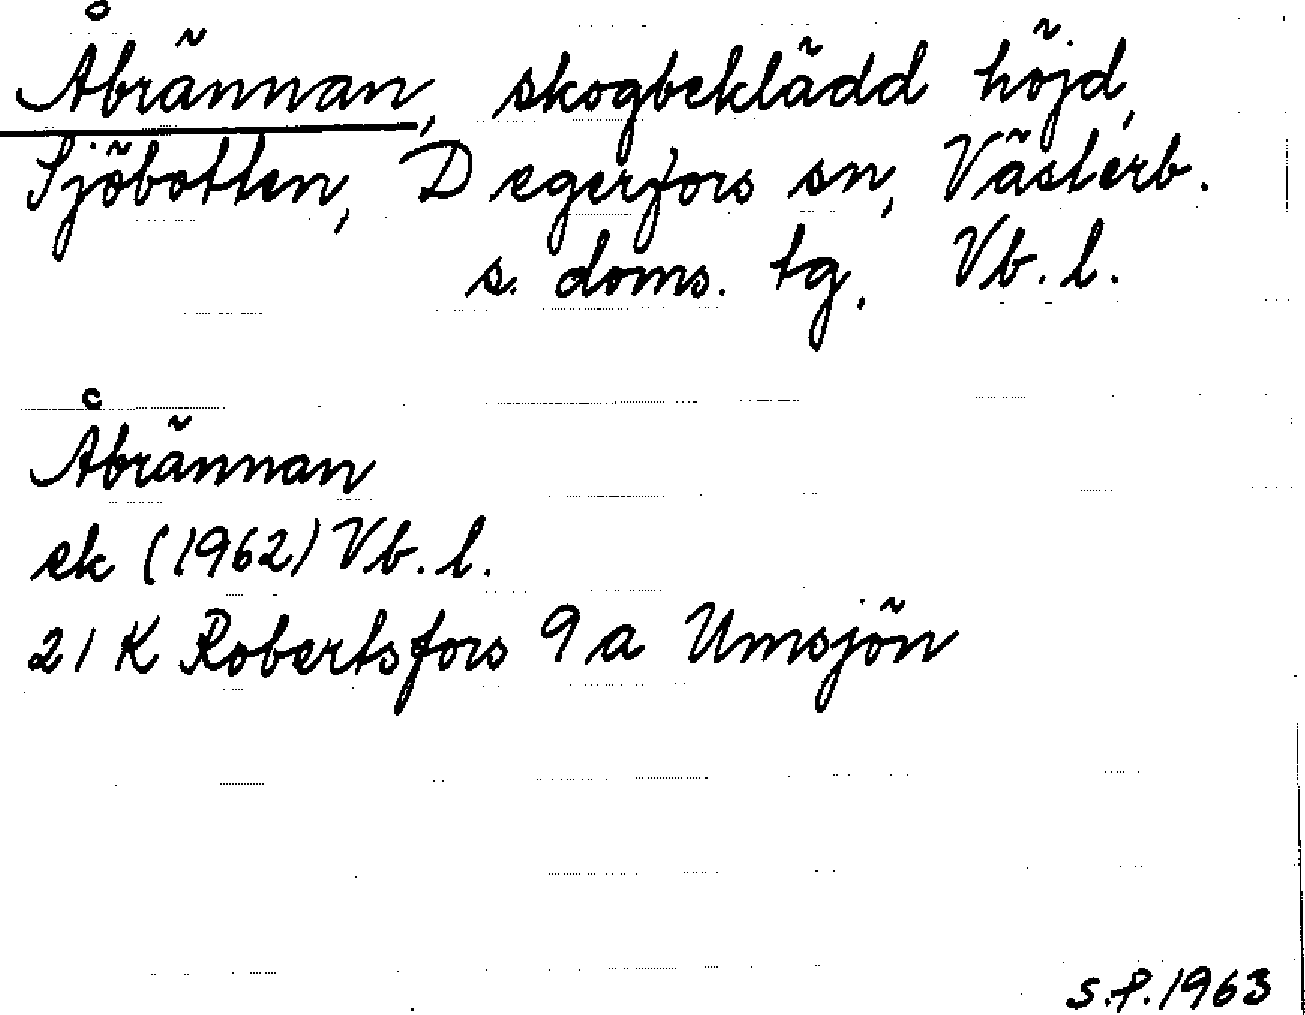 Åbrännan, skogbeklädd höjd,
Sjöbotten, Degerfors sn, Västerb.
s. doms. tg, Vb. l.
Åbrännan
ek (1962) Vb. l.
21 K Robertsfors 9 a Umsjön
S.P. 1963